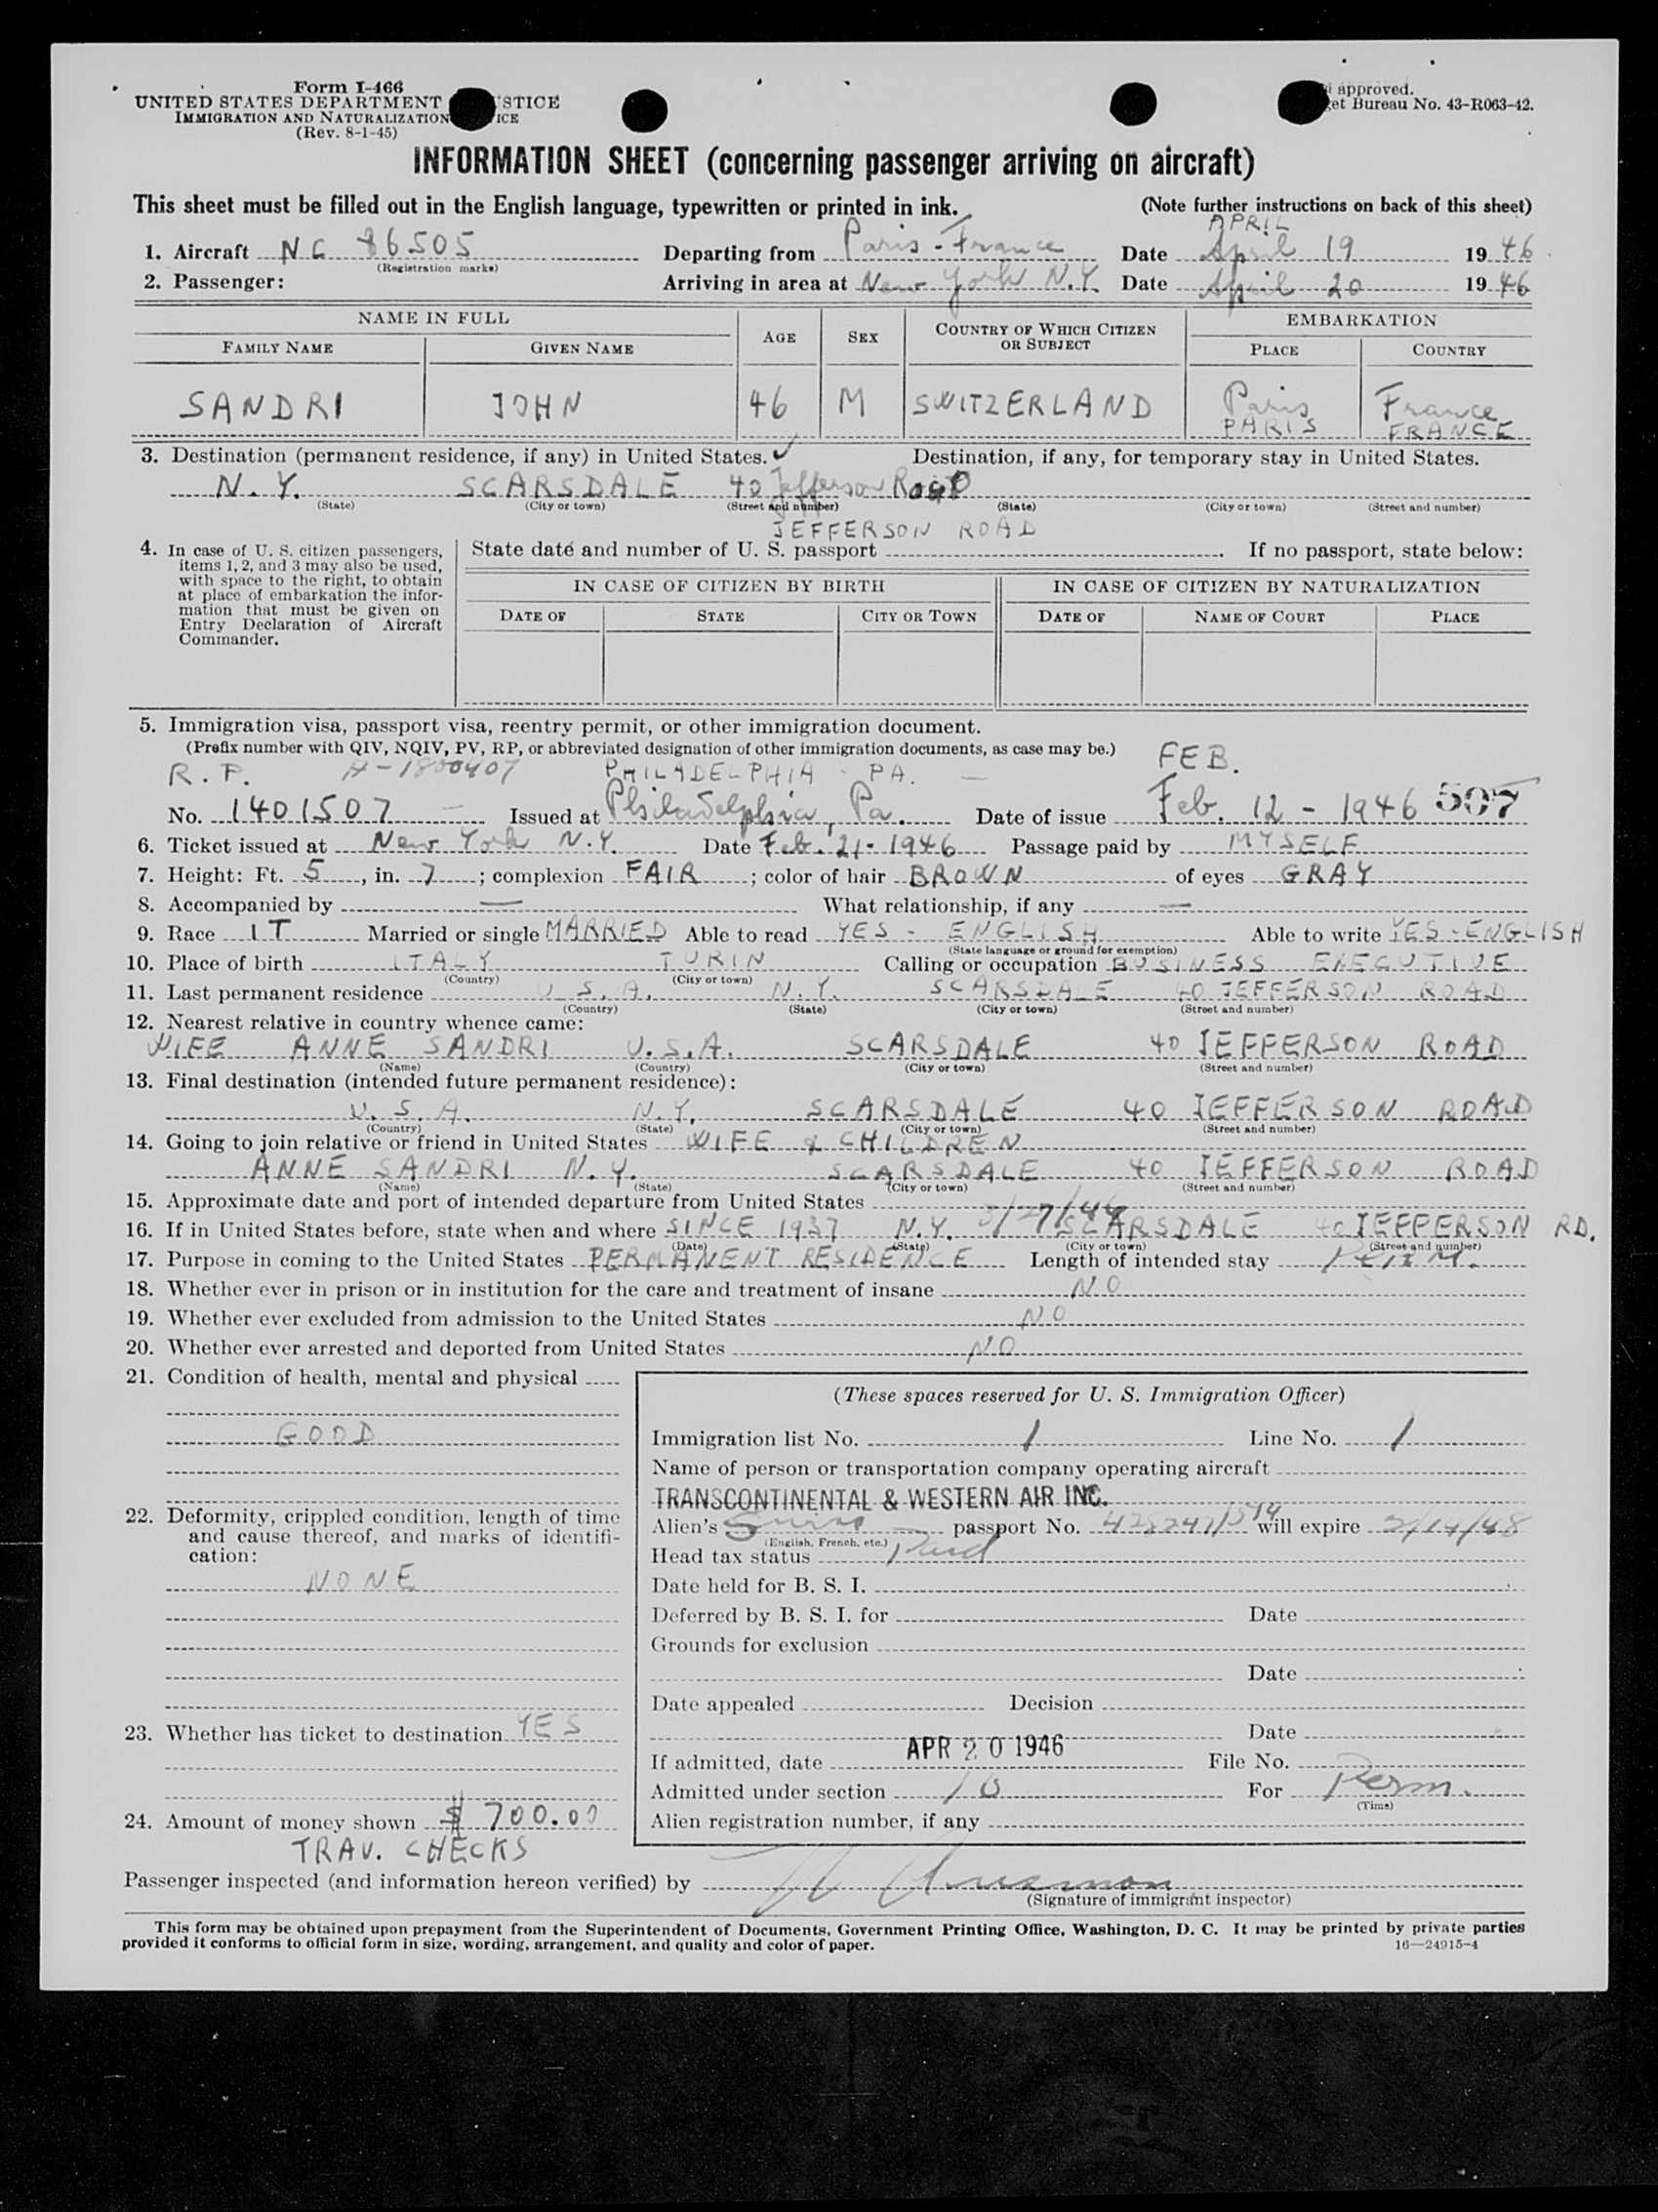 Form I-466
UNITED STATES DEPARTMENT STICE
IMMIGRATION AND NATURALIZATION ICE
(Rev. 8-1-45)
approved.
et Bureau No. 43-R063-42.
INFORMATION SHEET (concerning passenger arriving on aircraft)
This sheet must be filled out in the English language, typewritten or printed in ink. (Note further instructions on back of this sheet)
APRIL
1. Aircraft NC 86505 Departing from Paris - France Date April 19 1946
(Registration marks)
2. Passenger: Arriving in area at New York N.Y. Date April 20 1946
NAME IN FULL AGE SEX COUNTRY OF WHICH CITIZEN OR SUBJECT EMBARKATION
FAMILY NAME GIVEN NAME PLACE COUNTRY
SANDRI JOHN 46 M SWITZERLAND Paris France
PARIS FRANCE
3. Destination (permanent residence, if any) in United States. ✓ Destination, if any, for temporary stay in United States.
N.Y. SCARSDALE 40 Jefferson Road
(State) (City or town) (Street and number) (State) (City or town) (Street and number)
JEFFERSON ROAD
4. In case of U. S. citizen passengers, items 1, 2, and 3 may also be used, with space to the right, to obtain at place of embarkation the information that must be given on Entry Declaration of Aircraft Commander.
State date and number of U. S. passport . If no passport, state below:
IN CASE OF CITIZEN BY BIRTH IN CASE OF CITIZEN BY NATURALIZATION
DATE OF STATE CITY OR TOWN DATE OF NAME OF COURT PLACE
5. Immigration visa, passport visa, reentry permit, or other immigration document.
(Prefix number with QIV, NQIV, PV, RP, or abbreviated designation of other immigration documents, as case may be.) FEB.
R.P. A-1800407 PHILADELPHIA - PA. -
No. 1401507 - Issued at Philadelphia, Pa. Date of issue Feb. 12 - 1946 507
6. Ticket issued at New York N.Y. Date Feb. 21 - 1946 Passage paid by MYSELF
7. Height: Ft. 5, in. 7; complexion FAIR; color of hair BROWN of eyes GRAY
8. Accompanied by — What relationship, if any —
9. Race IT Married or single MARRIED Able to read YES - ENGLISH Able to write YES - ENGLISH
(State language or ground for exemption)
10. Place of birth ITALY TURIN Calling or occupation BUSINESS EXECUTIVE
(Country) (City or town)
11. Last permanent residence U.S.A. N.Y. SCARSDALE 40 JEFFERSON ROAD
(Country) (State) (City or town) (Street and number)
12. Nearest relative in country whence came:
WIFE ANNE SANDRI U.S.A. SCARSDALE 40 JEFFERSON ROAD
(Name) (Country) (City or town) (Street and number)
13. Final destination (intended future permanent residence):
U.S.A. N.Y. SCARSDALE 40 JEFFERSON ROAD
(Country) (State) (City or town) (Street and number)
14. Going to join relative or friend in United States WIFE & CHILDREN
ANNE SANDRI N.Y. SCARSDALE 40 JEFFERSON ROAD
(Name) (State) (City or town) (Street and number)
15. Approximate date and port of intended departure from United States
16. If in United States before, state when and where SINCE 1937 N.Y. SCARSDALE 40 JEFFERSON RD.
(Date) (State) (City or town) (Street and number)
17. Purpose in coming to the United States PERMANENT RESIDENCE Length of intended stay Perm.
18. Whether ever in prison or in institution for the care and treatment of insane NO
19. Whether ever excluded from admission to the United States NO
20. Whether ever arrested and deported from United States NO
21. Condition of health, mental and physical
GOOD
22. Deformity, crippled condition, length of time and cause thereof, and marks of identification:
NONE
23. Whether has ticket to destination YES
24. Amount of money shown $ 700.00
TRAV. CHECKS
(These spaces reserved for U. S. Immigration Officer)
Immigration list No. 1 Line No. 1
Name of person or transportation company operating aircraft
TRANSCONTINENTAL & WESTERN AIR INC.
Alien's Swiss passport No. will expire 2/14/48
(English, French, etc.)
Head tax status Paid
Date held for B. S. I.
Deferred by B. S. I. for Date
Grounds for exclusion
Date
Date appealed Decision
Date
If admitted, date APR 20 1946 File No.
Admitted under section For Perm.
(Time)
Alien registration number, if any
Passenger inspected (and information hereon verified) by
(Signature of immigrant inspector)
This form may be obtained upon prepayment from the Superintendent of Documents, Government Printing Office, Washington, D. C. It may be printed by private parties
provided it conforms to official form in size, wording, arrangement, and quality and color of paper. 16—24915-4